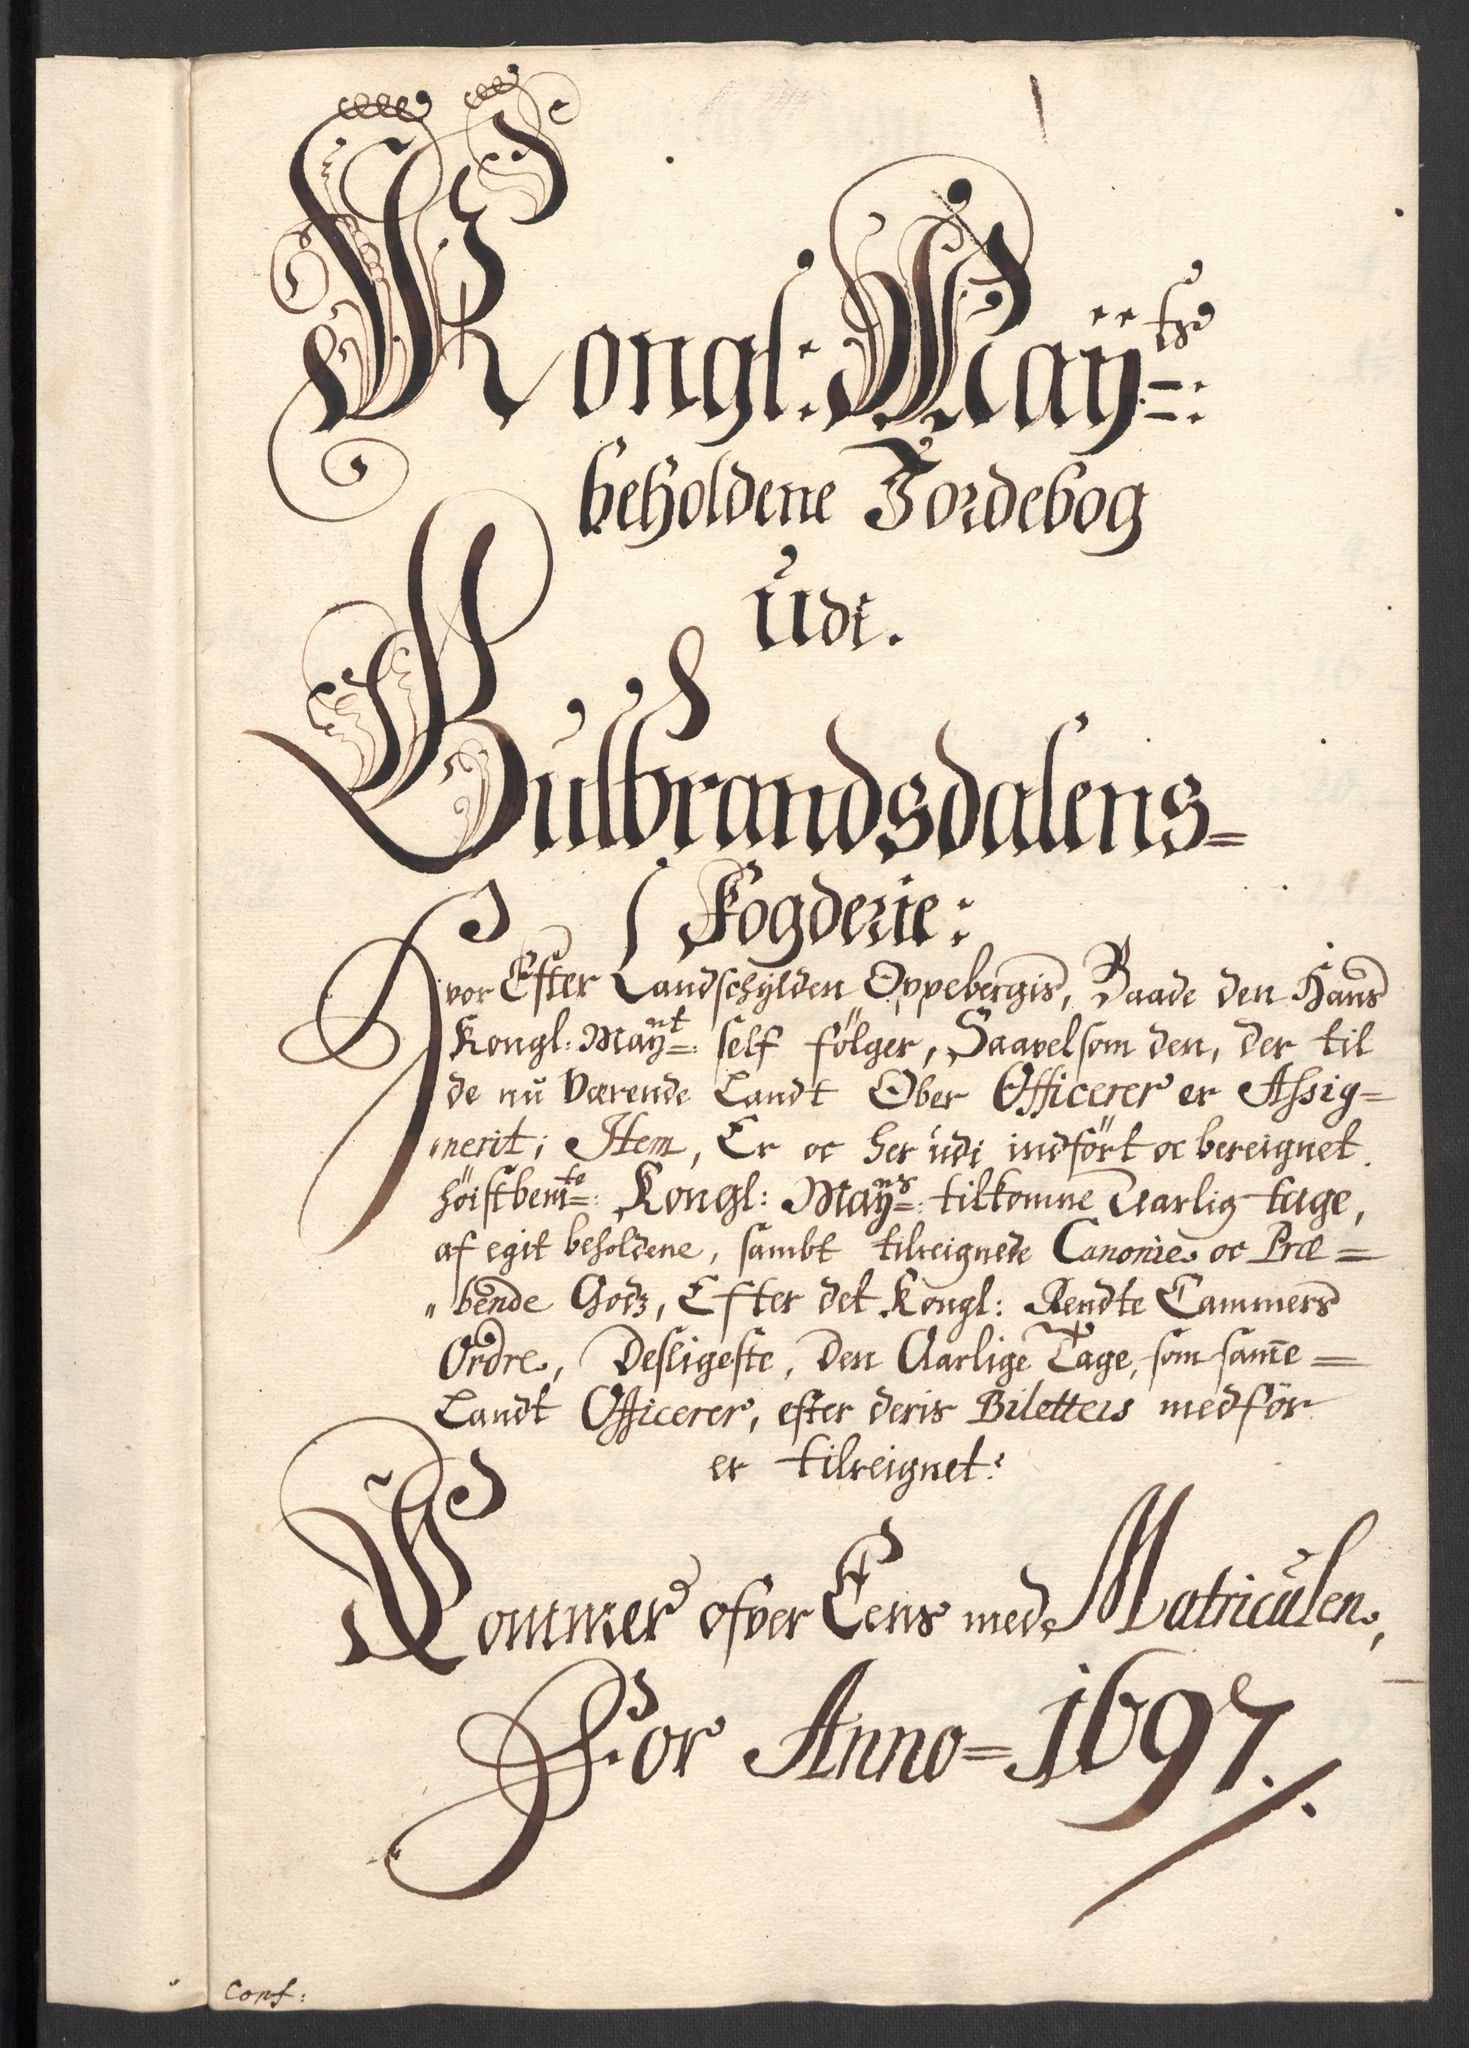 Kongl: Maÿtz:
beholdene Jordebog
Udi.
Gulbrandsdalens=
Fogderie:
Hvor Efter Landschylden Oppebergis, Baade den Hans
Kongl: Maÿnt: self fölger, Saavelsom den, der til
de nu Værende Landt Ober Officerer er Assig=
nerit; Item, Er oc her udi indfört oc bereignet
höistbemte: Kongl: Maÿns: tilkomne Aarlig tage,
af egit beholdene, sambt tilreignede Canonie oc Præ=
bende Godz, Efter det Kongl: Rendte Cammers
Ordre, Desligeste, Den Aarlige Tage, som same=
Landt Officerer, efter deris Biletters medför
er tilreignet:
Kommer ofver Eens med Matriculen,
For Anno=1697.
Conf: